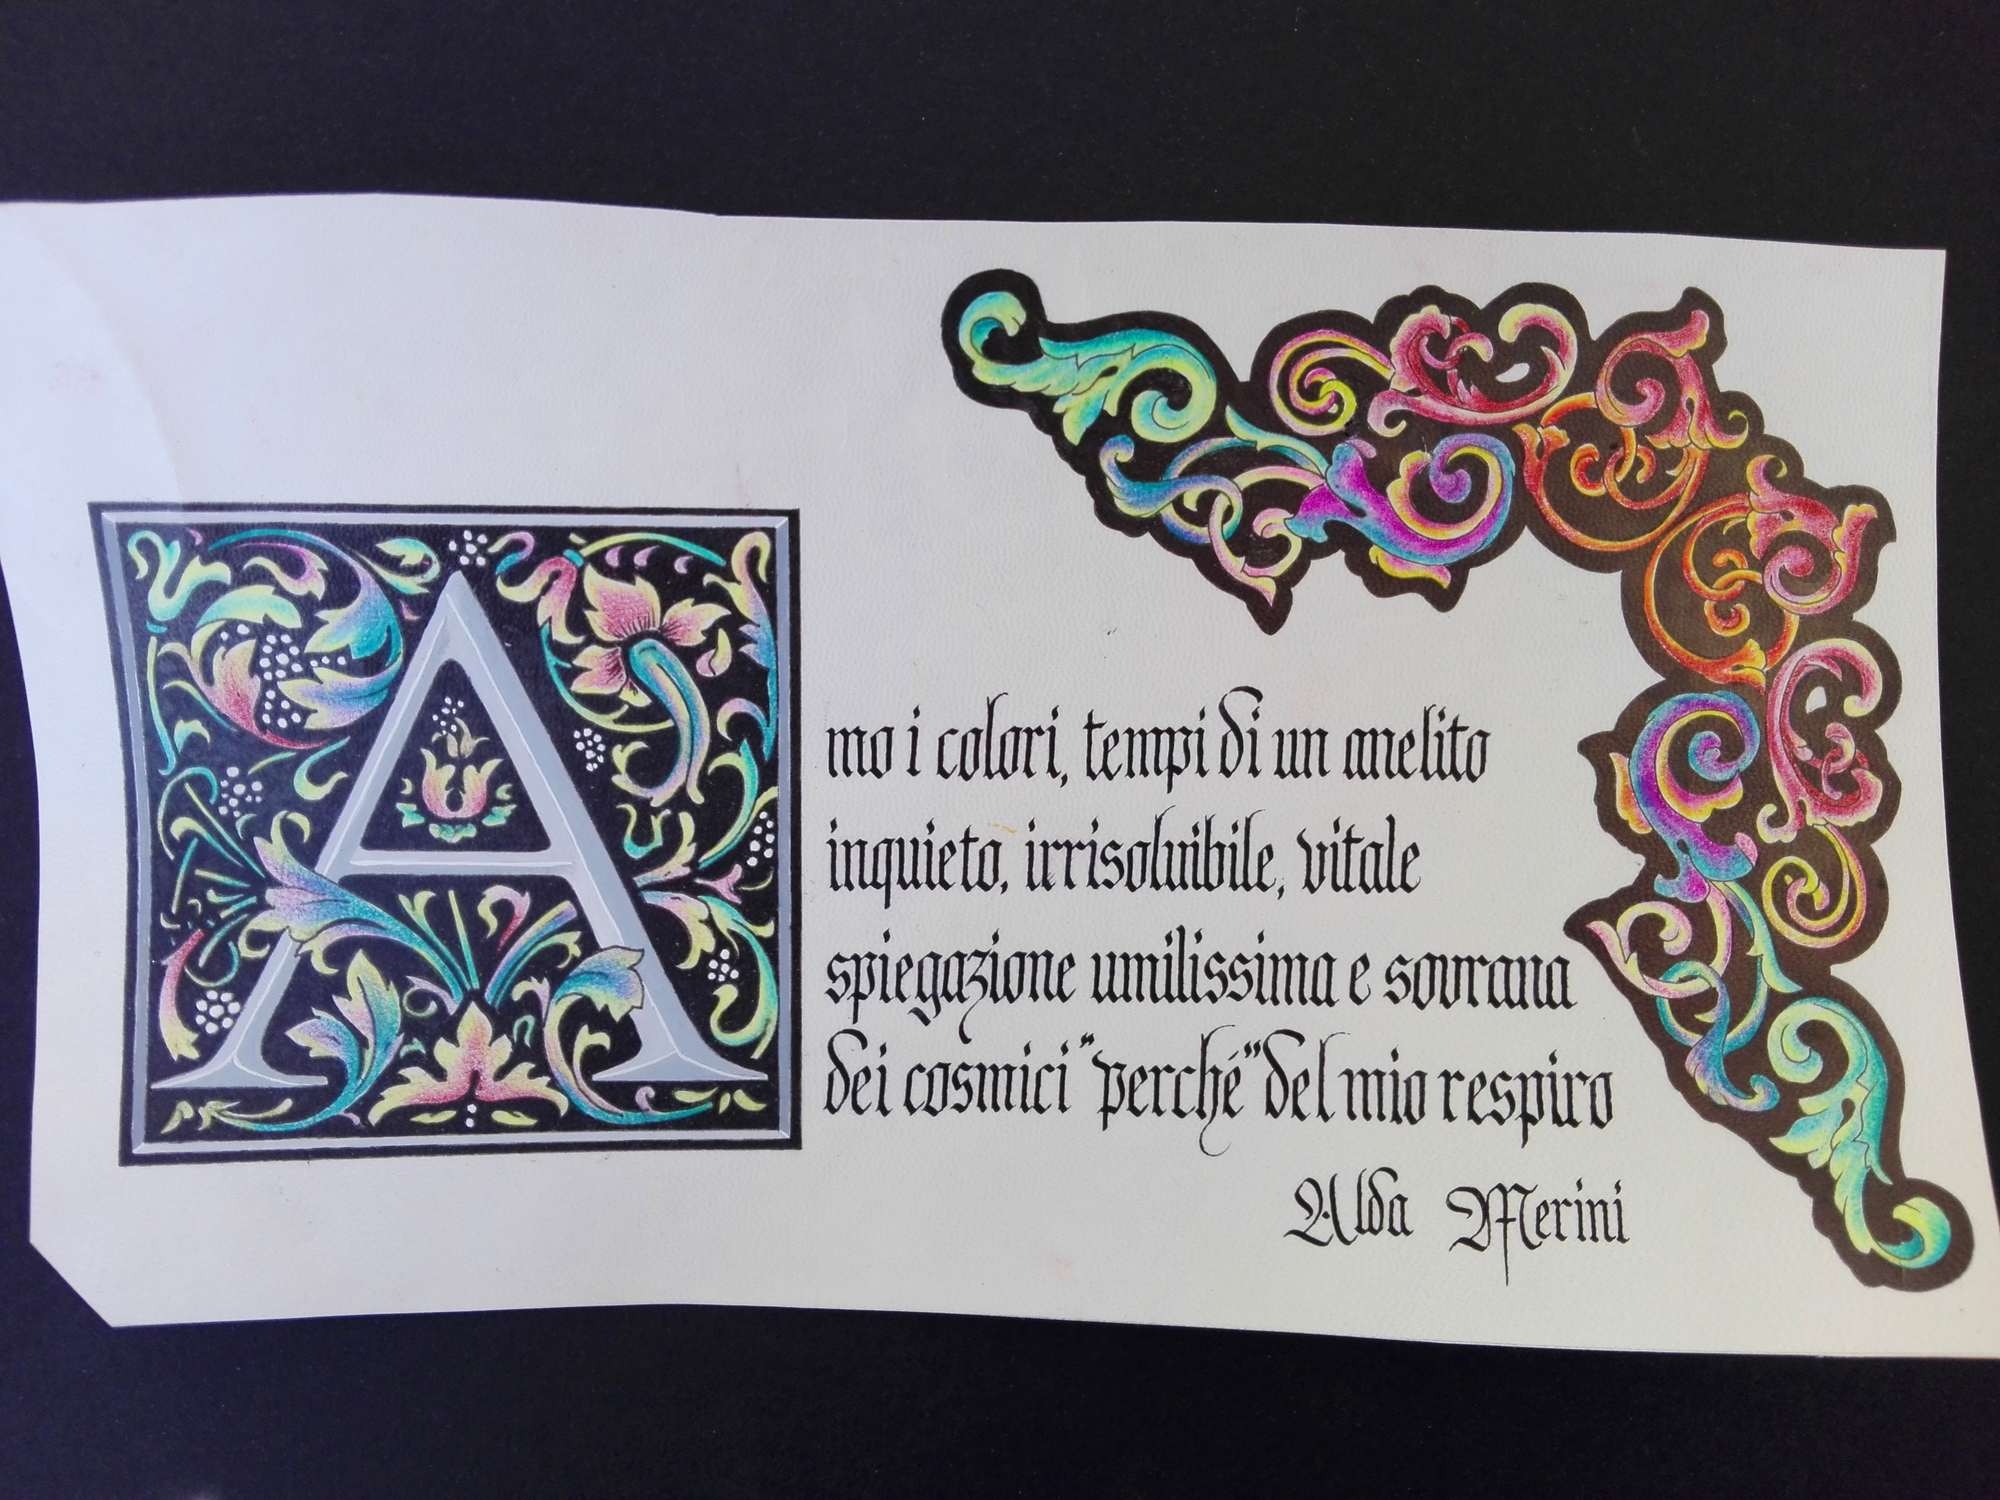 Amo i colori, tempi di un anelito
inquieto, irrisolvibile, vitale
spiegazione umilissima e sovrana
dei cosmici "perché" del mio respiro
Alda Merini